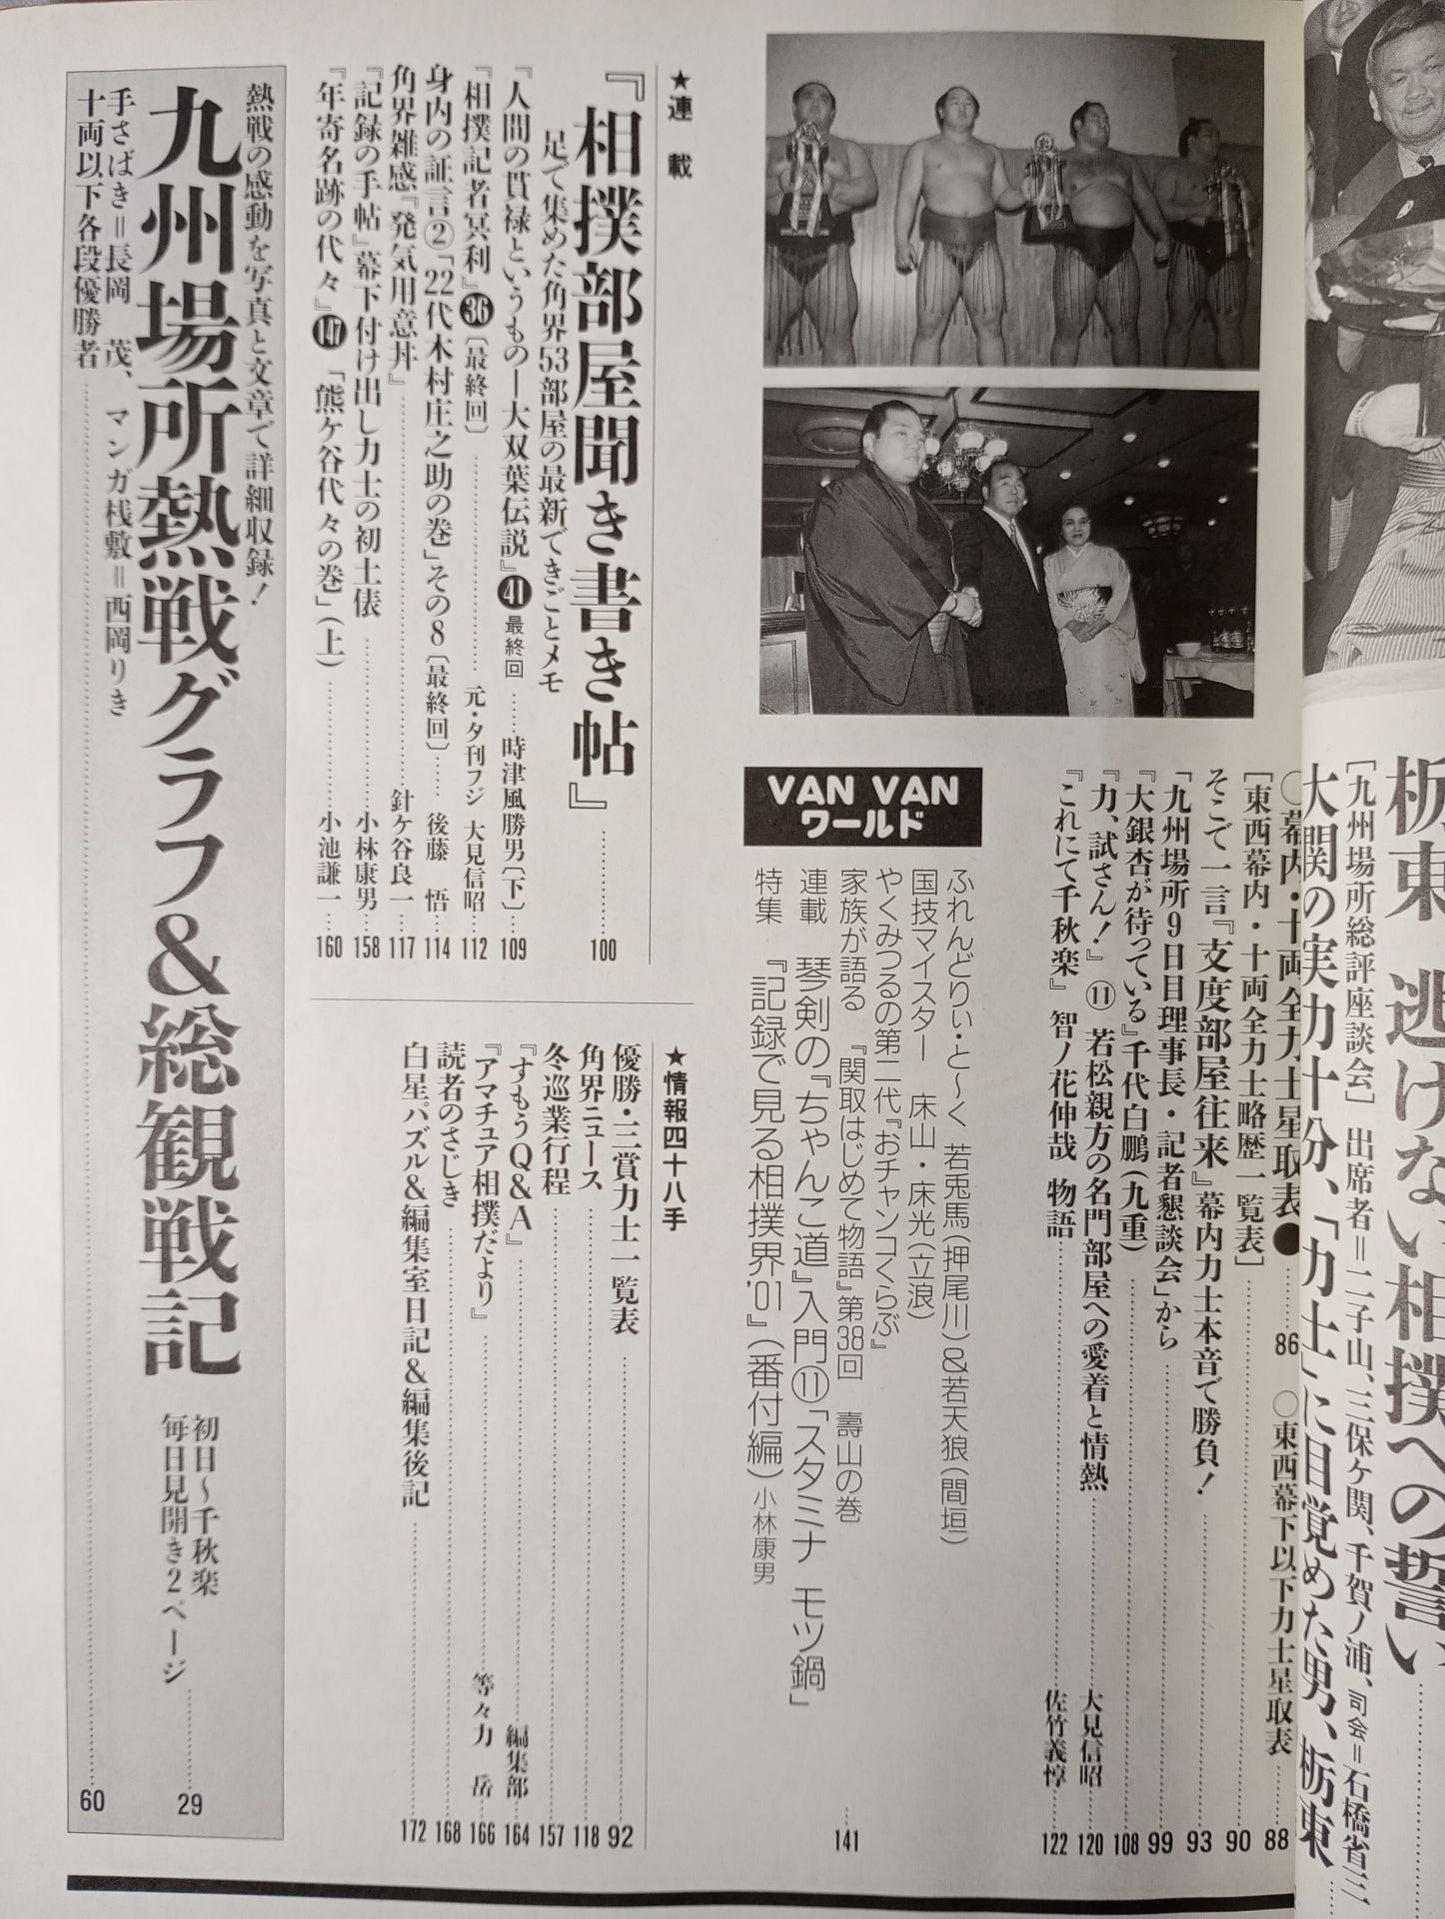 栃東 逃げない相撲への誓い
［九州場所総評座談会］ 出席者＝二子山、三保ヶ関、千賀ノ浦、司会＝石橋省三
大関の実力十分、「力士」に目覚めた男、栃東
○幕内・十両全力士星取表● 86 ○東西幕下以下力士星取表 88
［東西幕内・十両全力士略歴一覧表］ 90
そこで一言『支度部屋往来』幕内力士本音で勝負！ 93
「九州場所9日目理事長・記者懇談会」から 99
「大銀杏が待っている』千代白鵬（九重） 108
『力、試さん！』⑪ 若松親方の名門部屋への愛着と情熱 大見信昭 120
『これにて千秋楽』 智ノ花伸哉 物語 佐竹義惇 122
VAN VAN
ワールド
ふれんどりぃ・と〜く 若兎馬（押尾川）&若天狼（間垣）
国技マイスター 床山・床光（立浪）
やくみつるの第二代『おチャンコくらぶ』
家族が語る 『関取はじめて物語』第38回 壽山の巻 141
連載 琴剣の『ちゃんこ道』入門⑪「スタミナ モツ鍋」
特集 『記録で見る相撲界'01』（番付編）小林康男
★連載
『相撲部屋聞き書き帖』 100
足で集めた角界53部屋の最新できごとメモ
『人間の貫禄というもの―大双葉伝説』㊶最終回 時津風勝男〔下〕 109
『相撲記者冥利』㊱〔最終回〕 元・夕刊フジ 大見信昭 112
身内の証言②「22代木村庄之助の巻」その8〔最終回〕 後藤 悟 114
角界雑感『発気用意丼』 針ケ谷良一 117
『記録の手帖』幕下付け出し力士の初土俵 小林康男 158
『年寄名跡の代々』147「熊ケ谷代々の巻」（上） 小池謙一 160
★情報四十八手
優勝・三賞力士一覧表 92
角界ニュース 118
冬巡業行程 157
『すもうQ&A』 編集部 164
『アマチュア相撲だより』 等々力 岳 166
読者のさじき 168
白星パズル&編集室日記&編集後記 172
熱戦の感動を写真と文章で詳細収録！
九州場所熱戦グラフ&総観戦記 初日〜千秋楽
毎日見開き2ページ 29
手さばき＝長岡 茂、マンガ桟敷＝西岡りき
十両以下各段優勝者 60